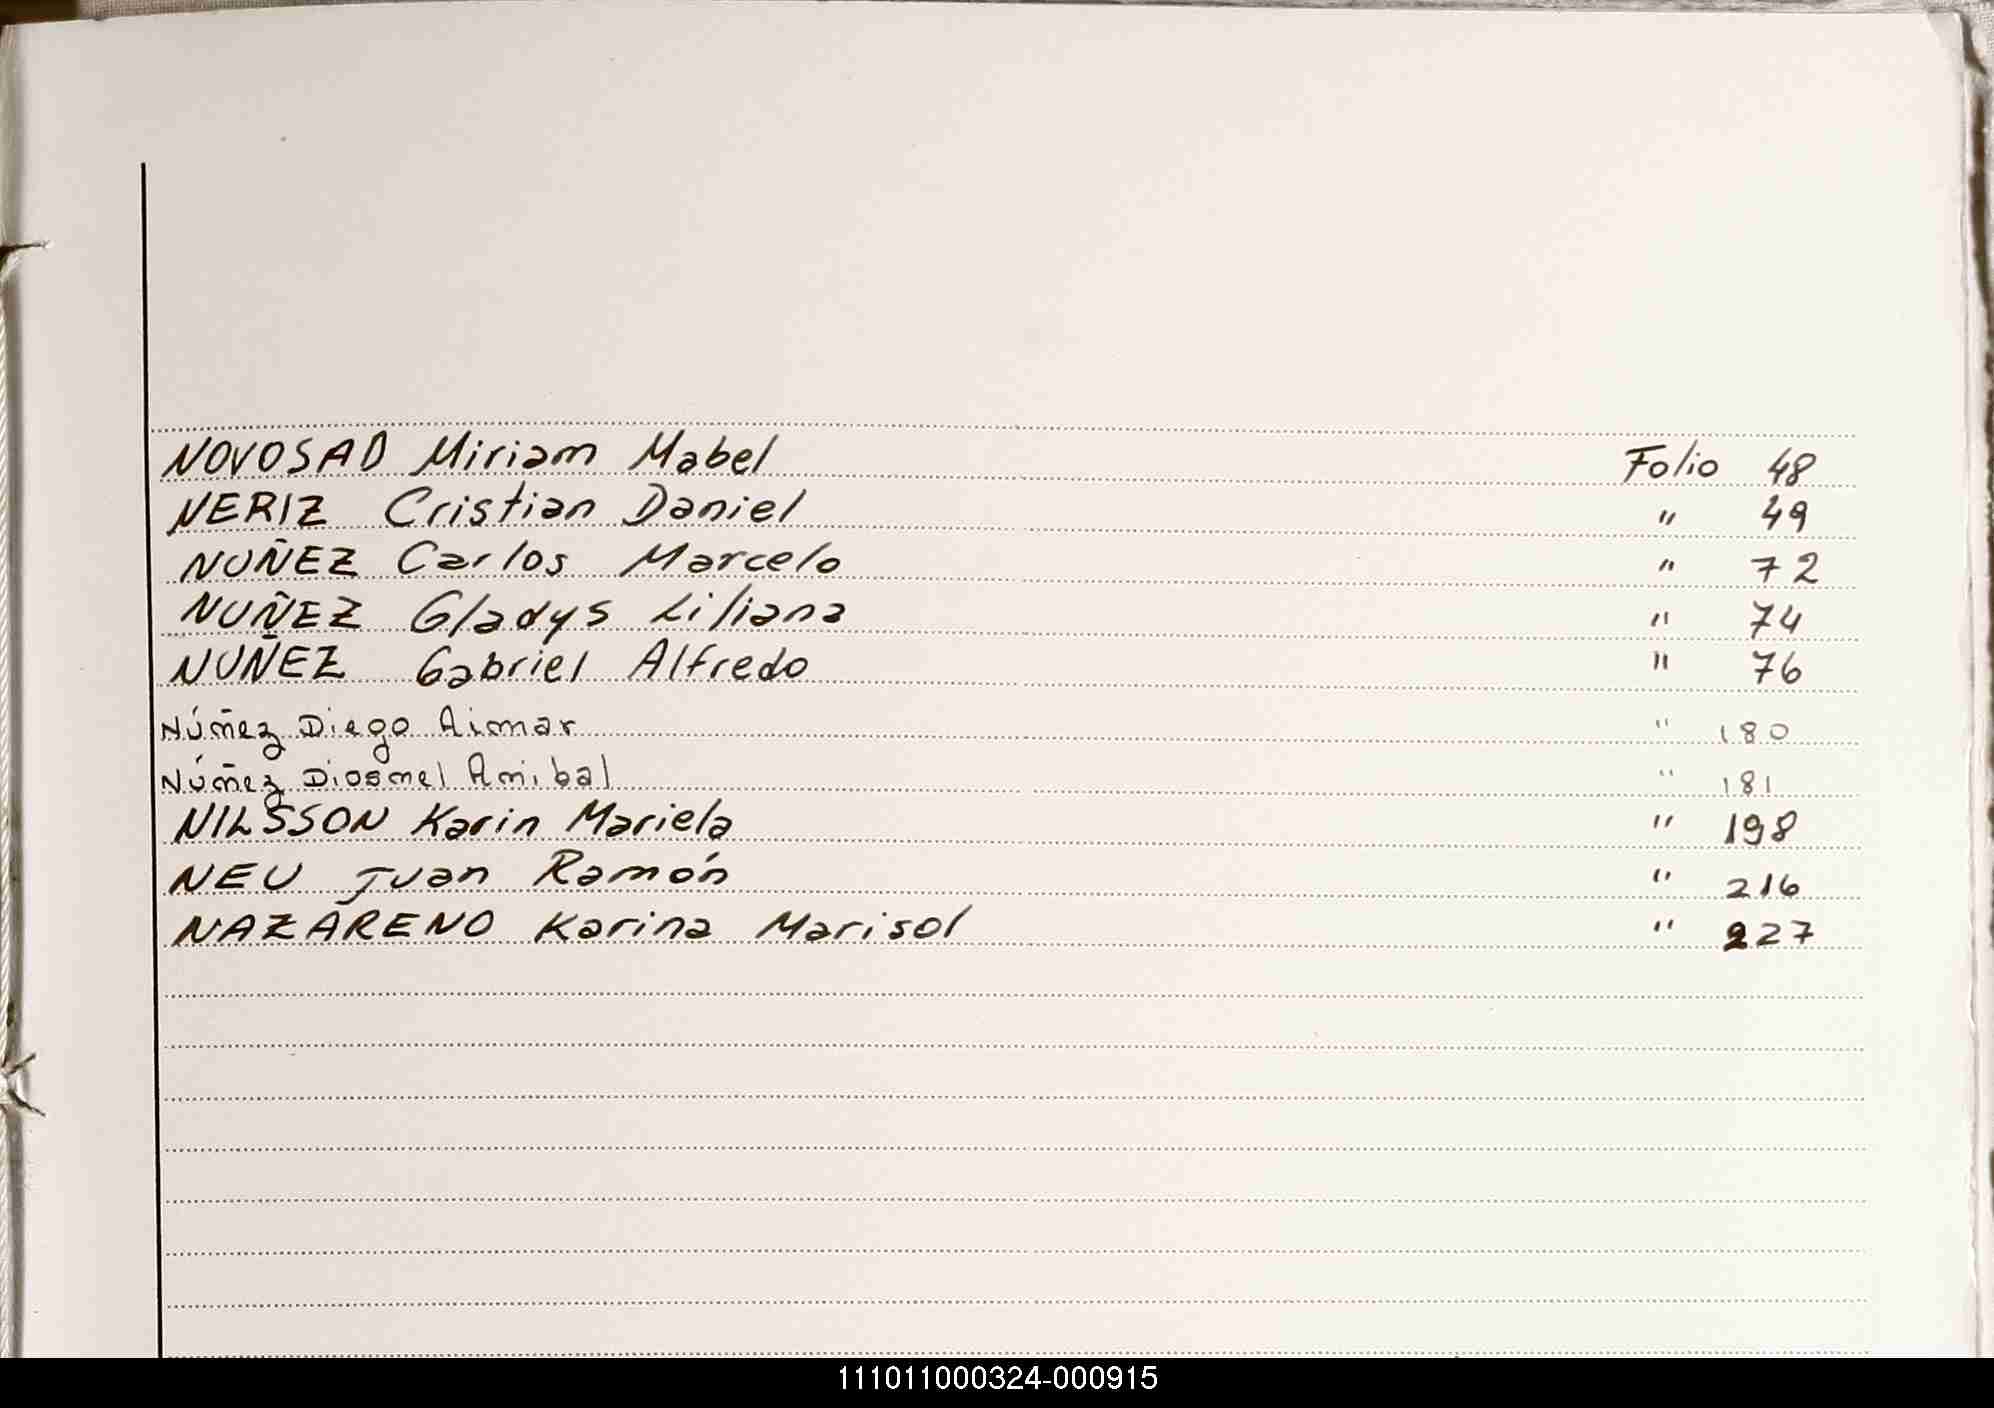 NOVOSAD Miriam Mabel Folio 48
NERIZ Cristian Daniel " 49
NUÑEZ Carlos Marcelo " 72
NUÑEZ Gladys Liliana " 74
NUÑEZ Gabriel Alfredo " 76
Núñez Diego Aimar " 180
Núñez Diosmel Anibal " 181
NILSSON Karin Mariela " 198
NEU Juan Ramón " 216
NAZARENO Karina Marisol " 227
111011000324-000915